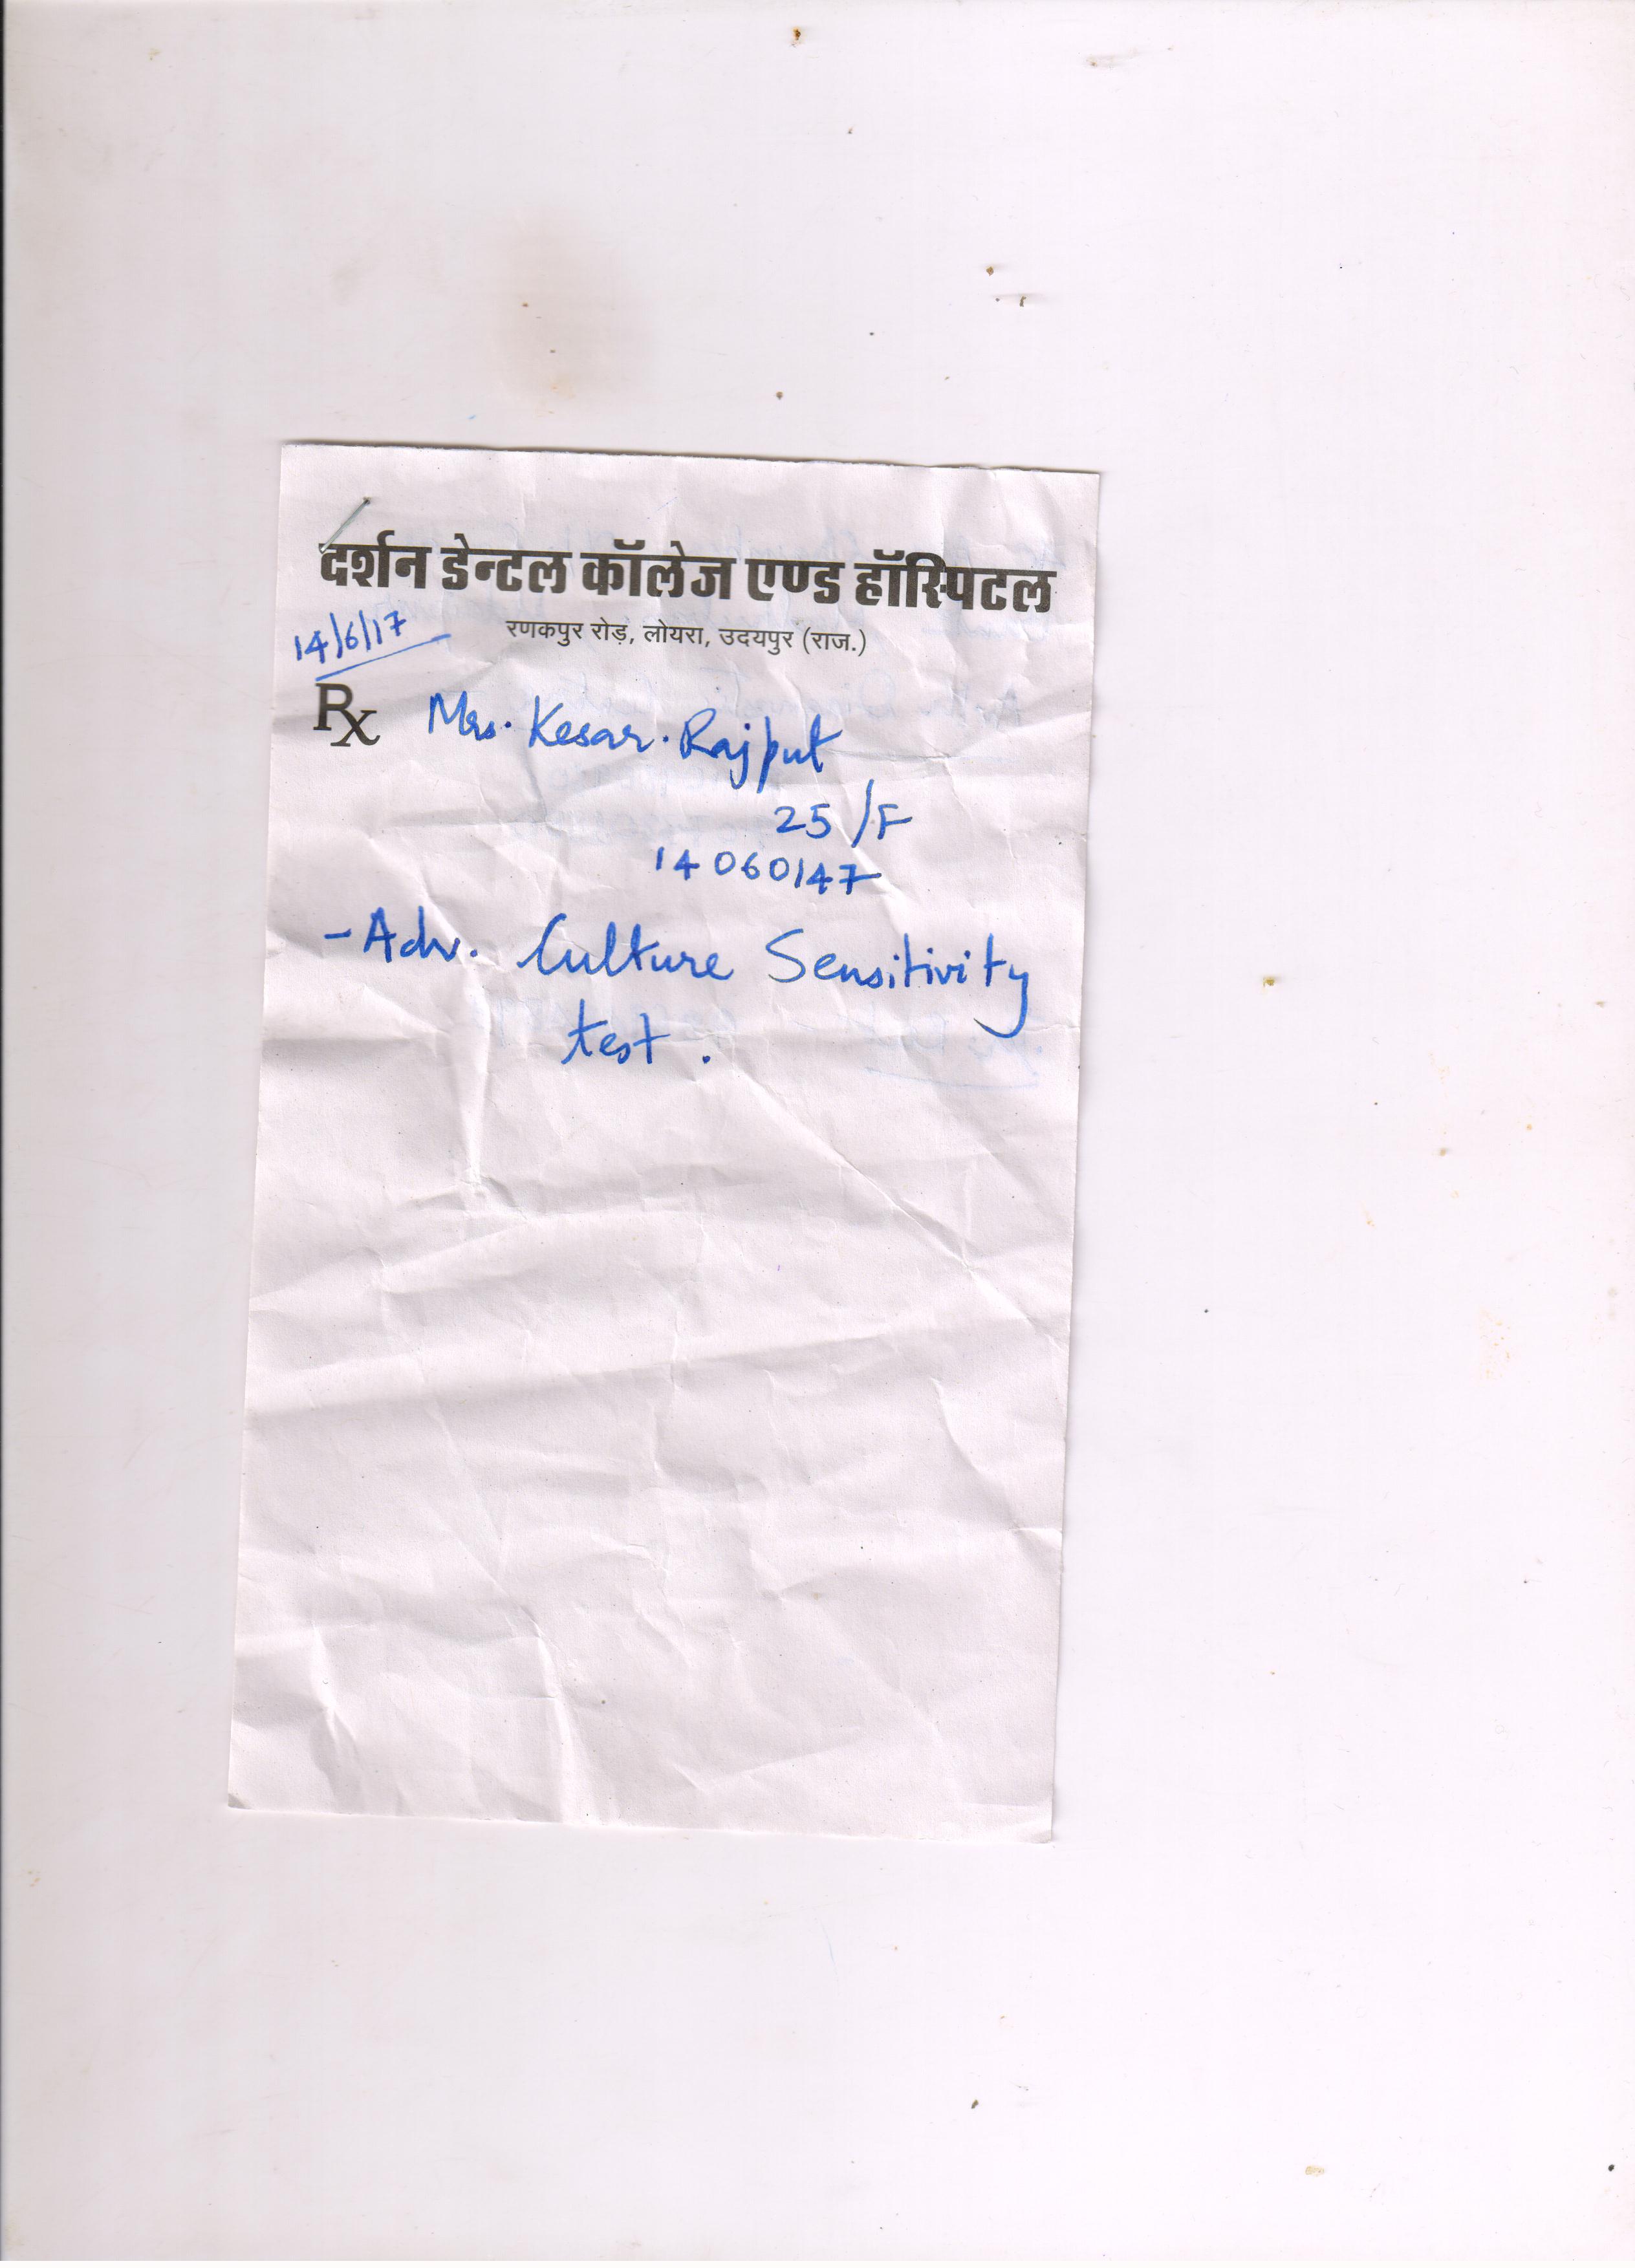 दर्शन डेन्टल कॉलेज एण्ड हॉस्पिटल
14/6/17
रणकपुर रोड़, लोयरा, उदयपुर (राज.)
Rx Mrs. Kesar. Rajput
25/F
14060147
- Adv. Culture Sensitivity
test.